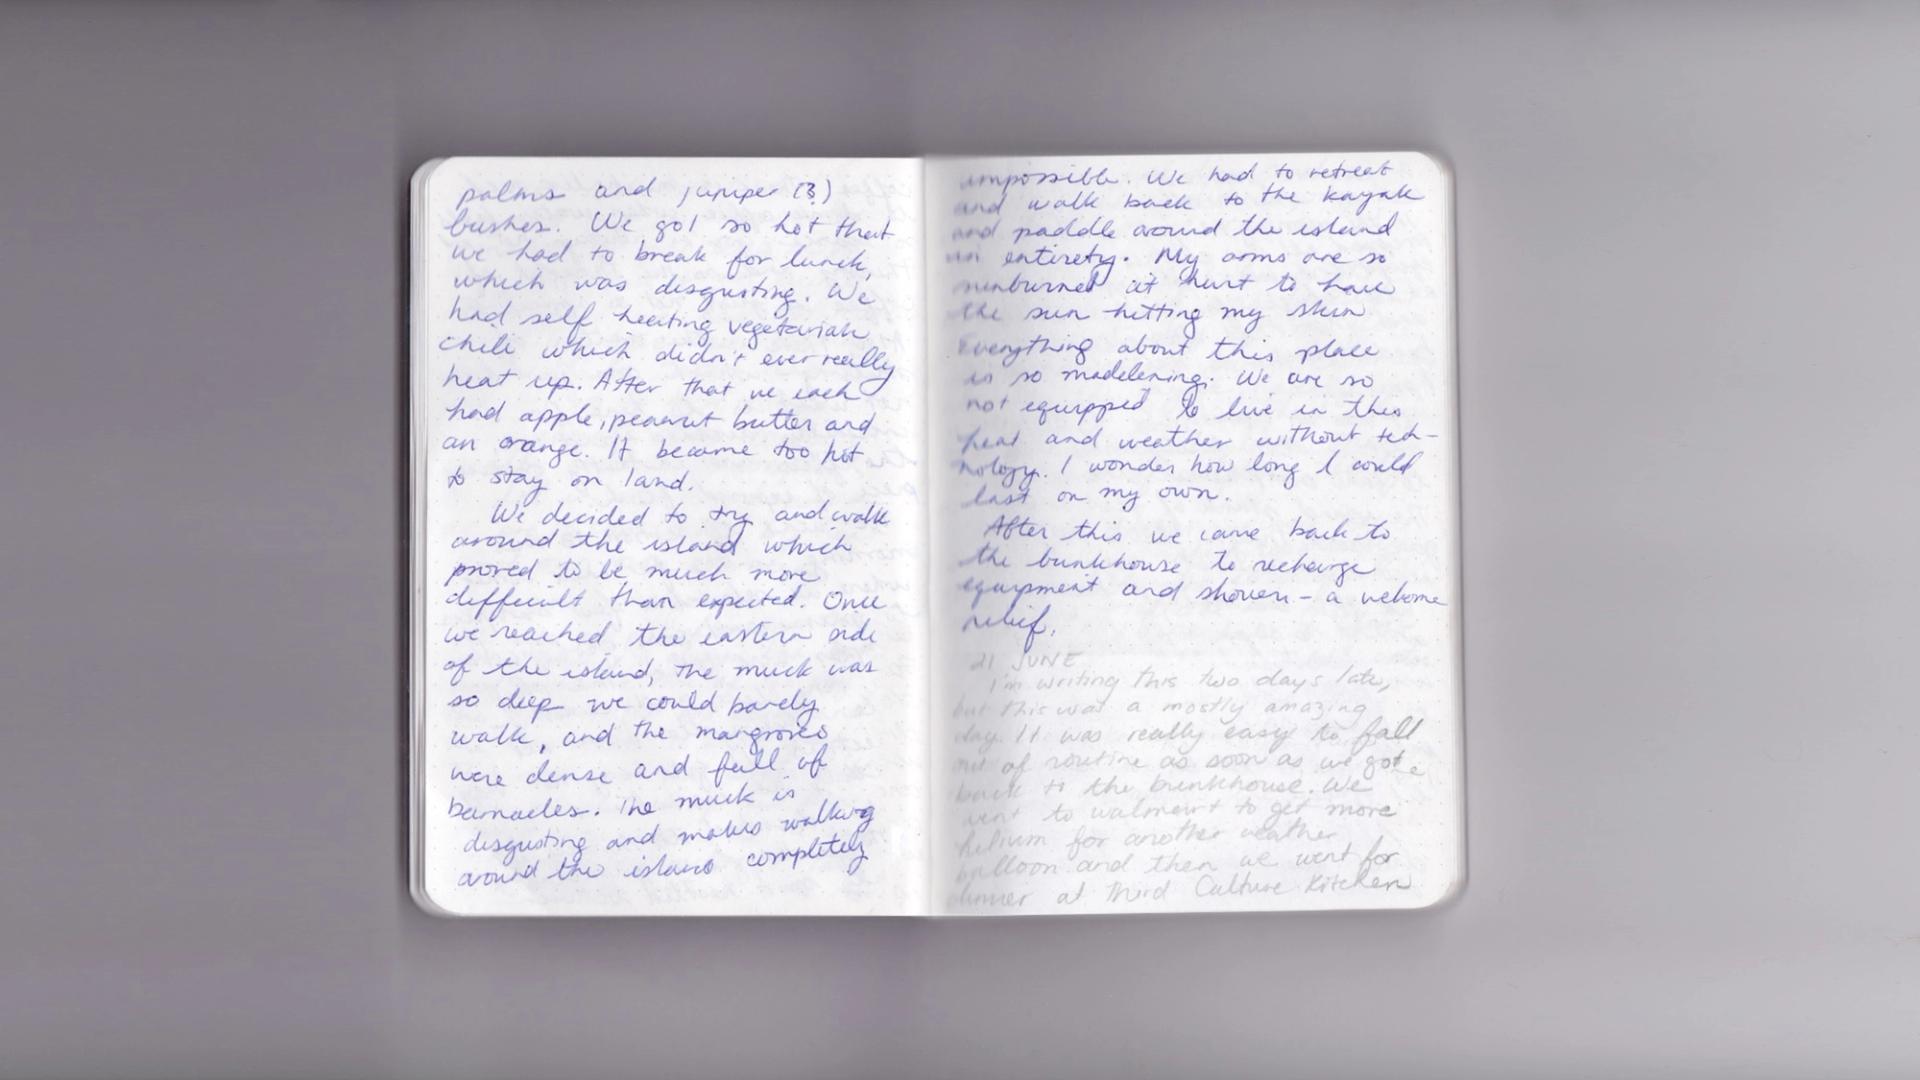 palms and juniper (?)
bushes. We got so hot that
we had to break for lunch,
which was disgusting. We
had self heating vegetarian
chili which didn't ever really
heat up. After that we each
had apple, peanut butter and
an orange. It became too hot
to stay on land.
We decided to try and walk
around the island which
proved to be much more
difficult than expected. Once
we reached the eastern side
of the island, the muck was
so deep we could barely
walk, and the mangroves
were dense and full of
barnacles. The muck is
disgusting and makes walking
around the island completely
impossible. We had to retreat
and walk back to the kayak
and paddle around the island
in entirety. My arms are so
sunburned it hurt to have
the sun hitting my skin
Everything about this place
is so maddening. We are so
not equipped to live in this
heat and weather without tech-
nology. I wonder how long I could
last on my own.
After this we came back to
the bunkhouse to recharge
equipment and shower - a welcome
relief.
21 JUNE
I'm writing this two days late,
but this was a mostly amazing
day. It was really easy to fall
out of routine as soon as we got
back to the bunkhouse. We
went to walmart to get more
helium for another weather
balloon and then we went for
dinner at Third Culture Kitchen